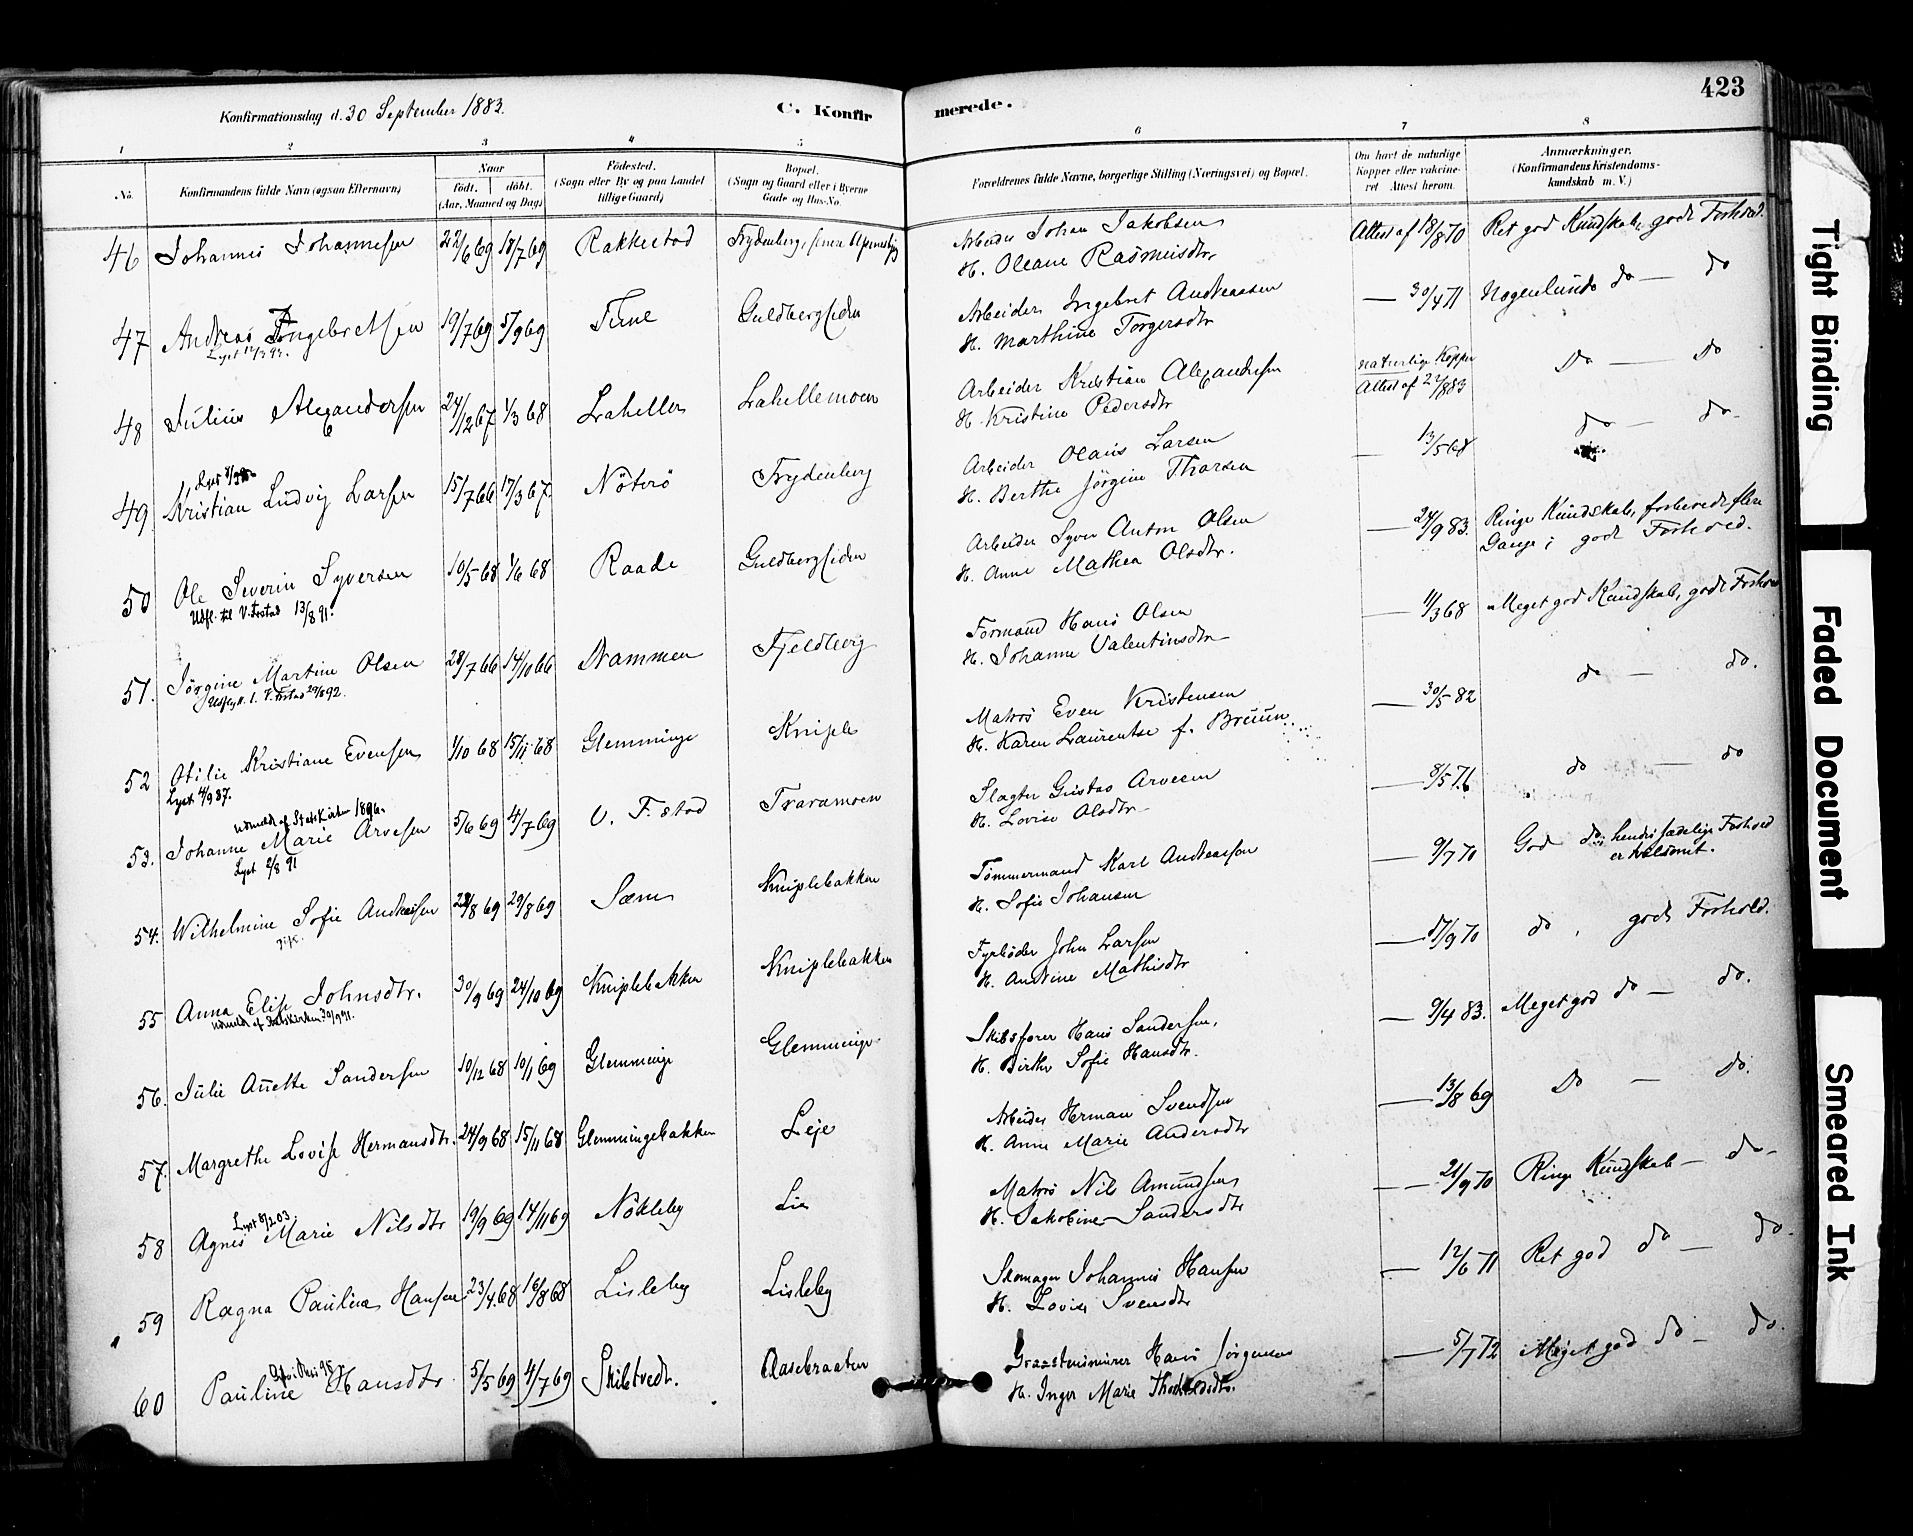 423
Konfirmationsdag d. 30 September 1883.
C. Konfir
merede.
1 2 3 4 5 6 7 8
No.
Konfirmandens fulde Navn (ogsaa Efternavn)
Naar
födt. döbt.
(Aar, Maaned og Dag)
Födested.
(Sogn eller By og paa Landet
tillige Gaard)
Bopæl.
(Sogn og Gaard eller i Byerne
Gade og Hus-No.
Forældrenes fulde Navne, borgerlige Stilling (Næringsvei) og Bopæl.
Om havt de naturlige
Kopper eller vakcine-
ret Attest herom.
Anmærkninger.
(Konfirmandens Kristendoms-
kundskab m. V.)
46 Johannes Johannesen 22/6 69 18/7 69 Rakkestad Frydenberg, Arbeider Johan Jakobsen Attest af 18/8 70 Ret god Kundskab, godt Forhold.
H. Oleane Rasmusdtr.
47 Andreas Ingebretsen 19/7 69 5/9 69 Tune Guldbergsiden Arbeider Ingebret Andreassen — 30/4 71 Nogenlunde do — do
H. Marthine Torgersdtr
48 Julius Alexandersen 24/12 67 1/3 68 Lahellen Lahellemoen Arbeider Kristian Alexandersen naturlige Kopper do — do
H. Kristine Pedersdtr Attest af 22/8 83
49 Kristian Ludvig Larsen 15/7 66 17/3 67. Nöterö Frydenberg Arbeider Olaus Larsen — 13/5 68 do — do
H. Berthe Jörgine Thorsen
50 Ole Severin Syversen 10/5 68 1/6 68 Raade Guldbergsiden Arbeider Syver Anton Olsen — 24/9 83. Ringe Kundskab, forberedt flere
Udfl. til V. Frstad 13/8 91. H. Anne Mathea Olsdtr. Gange; godt Forhold.
51. Jörgine Martine Olsen 28/7 66 14/10 66 Drammen Fjeldberg Formand Hans Olsen — 11/3 68 Meget god Kundskab, godt Forhold
H. Johanne Valentinsdtr
52 Otilie Kristiane Evensen 1/10 68 15/11 68 Glemminge Kniple Matros Even Kristensen — 30/5 82 do — do.
Lyst 4/9 87. H. Karen Laurentse f. Bruun.
53. Johanne Marie Arvesen 5/6 69 4/7 69 V. F.stad Traramoen Slagter Gustav Arvesen — 8/5 76 do — do
udmeldt af Statskirken 1896.
Lyst 2/8 91 H. Lovise Olsdtr
54. Wilhelmine Sofie Andreasen 28/8 69 29/8 69 Sarns Kniplebakken Tömmermand Karl Andreassen — 9/7 70 God do; hendes sædelige Forhold
H. Sofie Johansen er tvilsomt.
55 Anna Elise Johnsdtr. 30/9 69 24/10 69 Kniplebakken Kniplebakken Fyrböder John Larsen — 17/9 70 do, godt Forhold.
udmeldt af Statskirken 30/9 91. H. Andrine Mathisdtr
56. Julie Anette Sandersen 10/12 68 10/1 69 Glemminge Glemminge Skibsförer Hans Sandersen, — 9/4 83. Meget god do — do.
H. Birthe Sofie Hansdtr.
57. Margrethe Lovise Hermansdtr. 24/9 68 15/11 68 Glemmingebakken Leje Arbeider Herman Svendsen — 13/8 69 do — do.
H. Anne Marie Andersdtr
58 Agnes Marie Nilsdtr 19/9 69 14/11 69 Nökleby Lie Matros Nils Amundsen — 21/9 70 Ringe Kundskab — do
Lyst 8/2 03. H. Jakobine Sandersdtr
59 Ragna Pauline Hansen 23/4. 68 16/8 68 Lisleby Lisleby Skomager Johannes Hansen — 12/6 71 Ret god do — do.
H. Lovise Svensdtr
60 Pauline Hansdtr 5/5 69 4/7 69 Skibtvedt. Aasebraaten Graastensmurer Hans Jörgensen — 5/7 72 Meget god do — do.
H. Inger Marie
Tight Binding
Faded Document
Smeared Ink